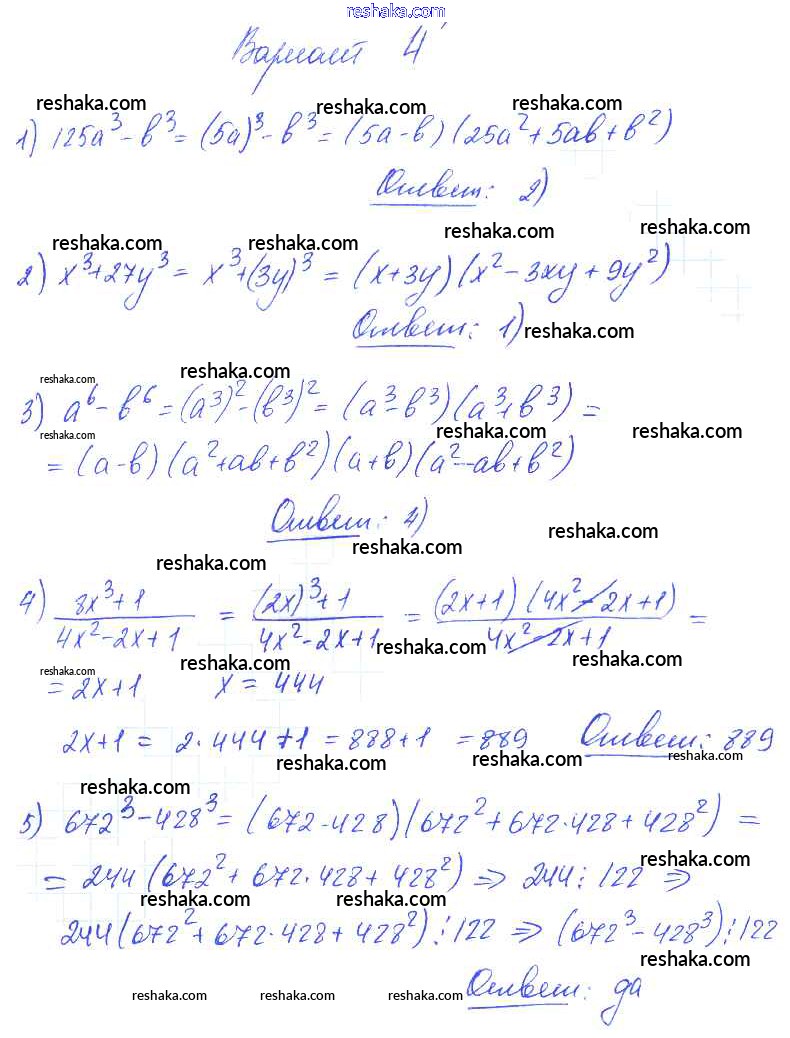 reshaka.com
Вариант 4
reshaka.com reshaka.com reshaka.com
1) 125a³-b³=(5a)³-b³=(5a-b)(25a²+5ab+b²)
Ответ: 2)
reshaka.com reshaka.com reshaka.com
2) x³+27y³= x³+(3y)³ = (x+3y)(x²-3xy+9y²)
Ответ: 1) reshaka.com
reshaka.com reshaka.com
3) a⁶-b⁶=(a³)²-(b³)²=(a³-b³)(a³+b³)=
reshaka.com reshaka.com reshaka.com
=(a-b)(a²+ab+b²)(a+b)(a²-ab+b²)
Ответ: 4)
reshaka.com
reshaka.com reshaka.com
4) 8x³+1 / 4x²-2x+1 = (2x)³+1 / 4x²-2x+1 = (2x+1)(4x²-2x+1) / 4x²-2x+1 =
reshaka.com
reshaka.com reshaka.com reshaka.com
= 2x+1 x = 444
2x+1 = 2·444+1 =888+1 =889 Ответ: 889
reshaka.com reshaka.com reshaka.com
reshaka.com
5) 672³-428³=(672-428)(672²+672·428+428²) =
reshaka.com
= 244(672²+672·428+428²) ⇒ 244⋮122 ⇒
reshaka.com reshaka.com
244(672²+672·428+428²)⋮122 ⇒ (672³-428³)⋮122
reshaka.com
Ответ: да
reshaka.com reshaka.com reshaka.com